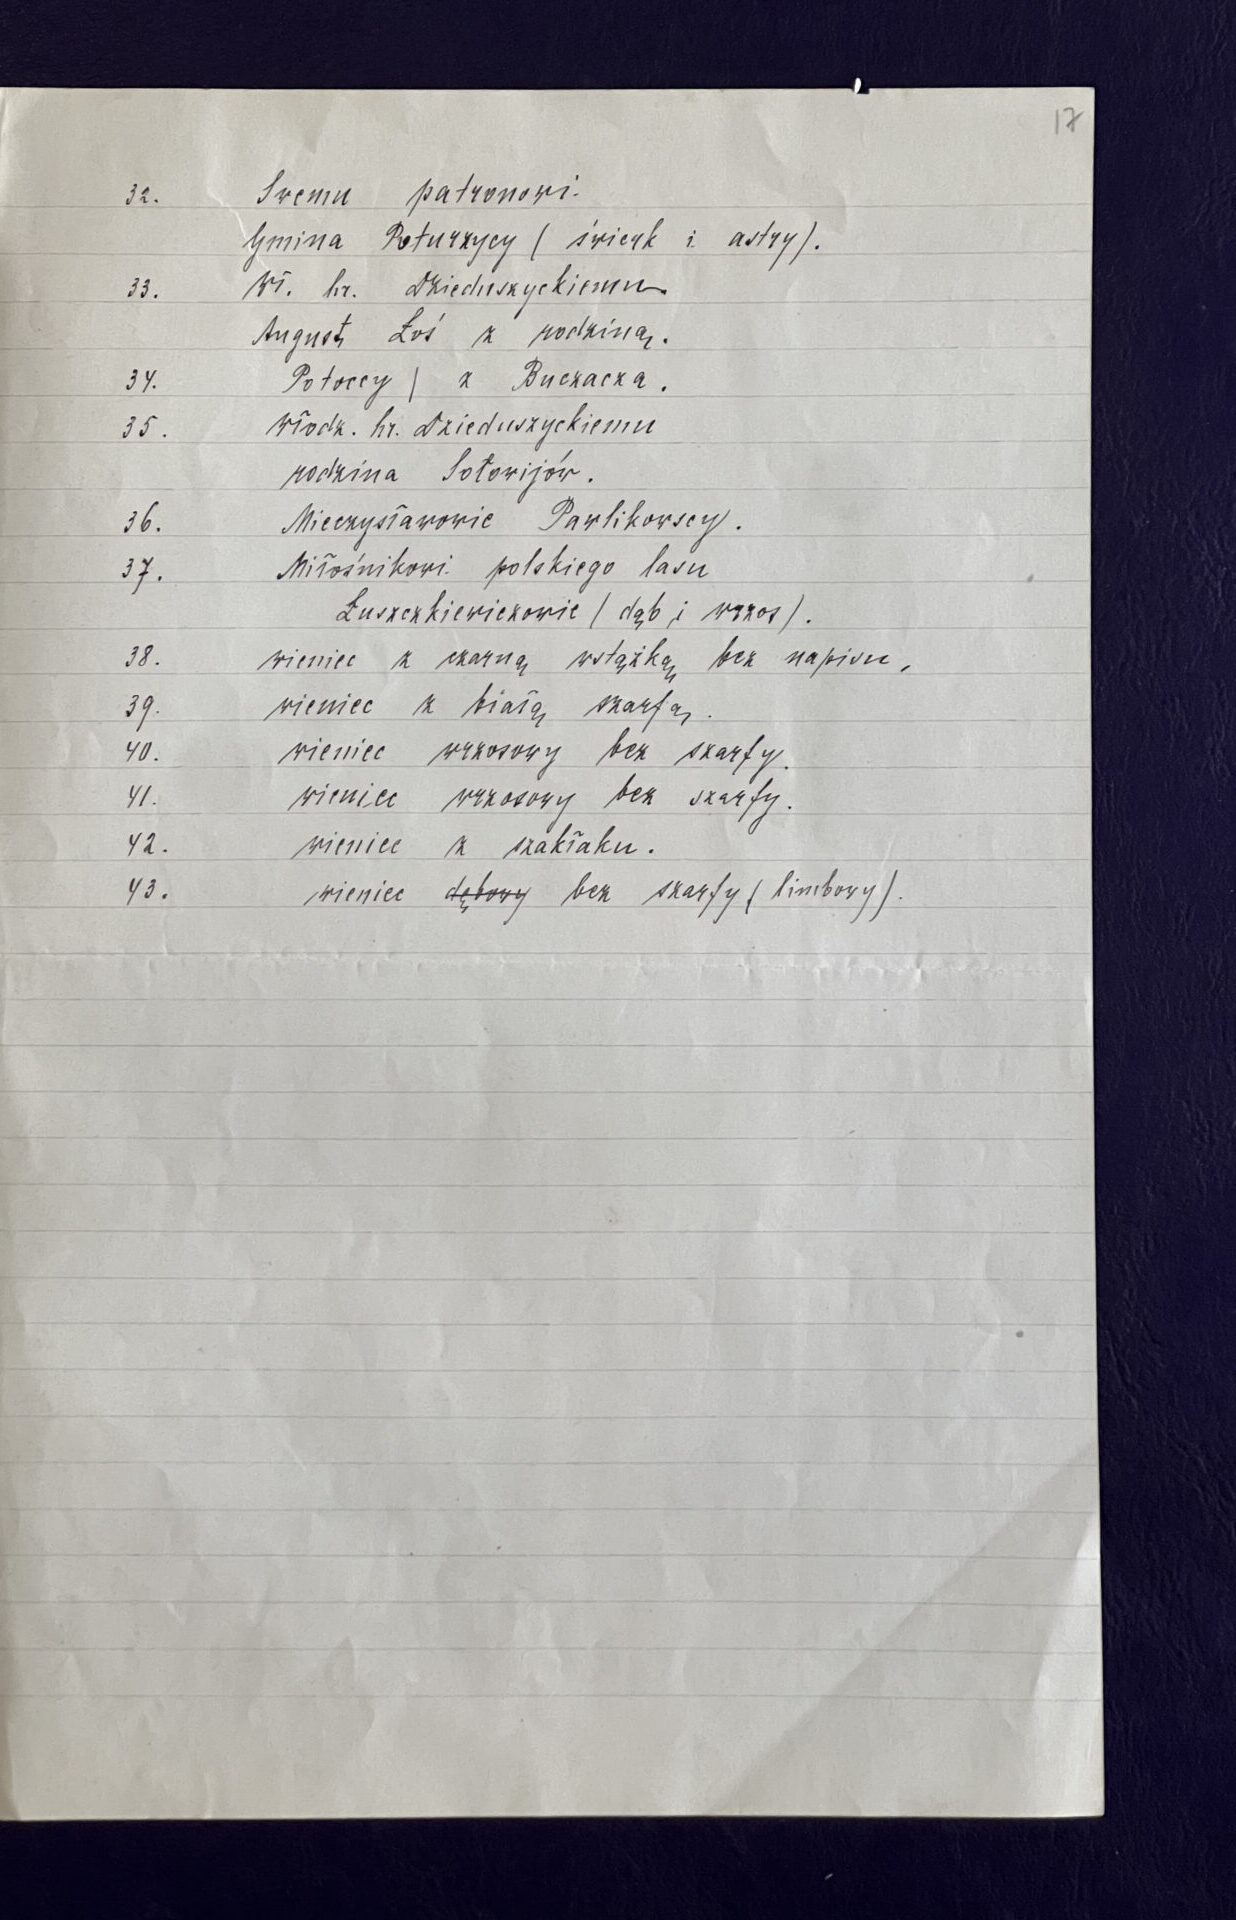 17
32. Swemu patronowi.
Gmina Poturzycy (świerk i astry).
33. Wł. hr. Dzieduszyckiemu.
August Łoś z rodziną.
34. Potoccy | z Buczacza.
35. Włodz. hr. Dzieduszyckiemu
rodzina Sołowijów.
36. Mieczysławowie Pawlikowscy.
37. Miłośnikowi polskiego lasu
Łuszczkiewiczowie (dąb i wrzos).
38. wieniec z czarną wstążką bez napisu,
39. wieniec z białą szarfą.
40. wieniec wrzosowy bez szarfy.
41. wieniec wrzosowy bez szarfy.
42. wieniec z szakłaku.
43. wieniec dębowy bez szarfy (limbowy).